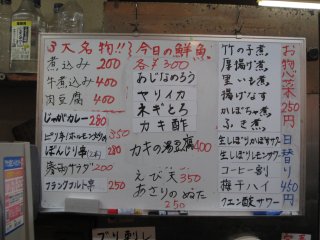 3大名物!!
煮込み 200
牛煮込み 400
肉豆腐 400
じゃがカレー 280
350
ぼんじり串(2本) 280
サラダ 200
フランクフルト串 250
今日の鮮魚
各¥300
あじなめろう
ヤリイカ
ネギとろ
カキ酢
カキの湯豆腐 400
えび天 350
あさりのぬた
250
お惣菜 250円
竹の子煮
厚揚げ煮
里いも煮
揚げなす
かぼちゃ煮
ふき煮
日替り 450円
生しぼりかぼすサワー
生しぼりレモンサワー
コーヒー割り
梅干ハイ
クエン酸サワー
ブリ刺し